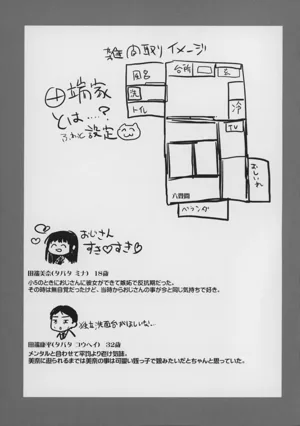 雑間取りイメージ
風呂
台所
洗
トイレ
冷
TV
おしいれ
八畳間
ベランダ
田端家
とは…?
ふわっと設定
おじさん
すき♡すき♡
田端美奈(タバタ ミナ) 18歳
小5のときにおじさんに彼女ができて嫉妬で反抗期だった。
その時は無自覚だったけど、当時からおじさんの事が今と同じ気持ちで好き。
独立洗面台がほしいな…
(タバタ コウヘイ) 32歳
メンタルと合わせて平均より老け気味。
美奈に迫られるまでは美奈の事は可愛い姪っ子で親みたいだとちゃんと思っていた。